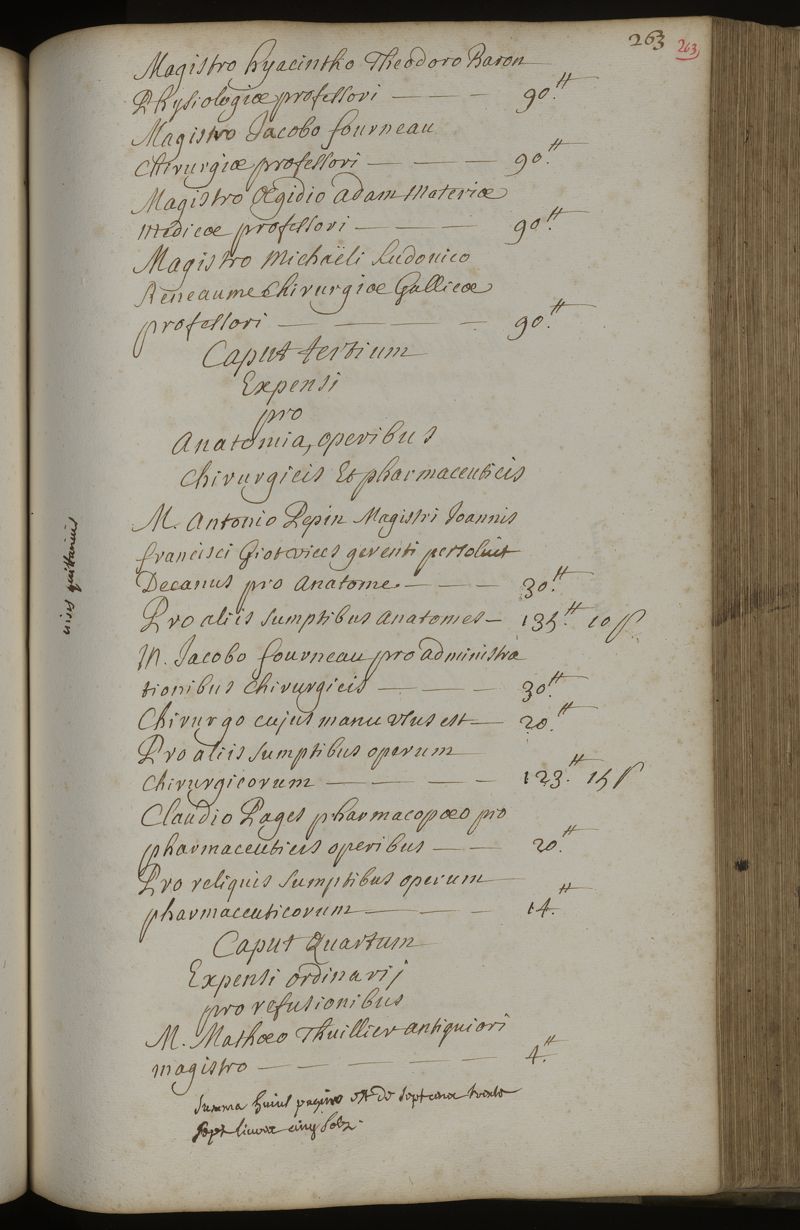 263 263
Magistro hyacintho Theodoro Baron
Physiologiæ professori — — — 90.tt
Magistro Jacobo fourneau
Chirurgiæ professori — — — 90.tt
Magistro Œgidio adam Materiæ
Medicæ professori — — — 90.tt
Magistro Michaëli Ludovico
Reneaume Chirurgiæ Gallicæ
professori — — — — 90.tt
Caput tertium
Expensi
pro
Anatomia, operibus
Chirurgicis Et pharmaceuticis
M. Antonio Pepin Magistri Joannis
francisci vices gerenti persolvit
Decanus pro anatome. — — — 30.tt
Pro aliis sumptibus anatomes — 135.tt 10 ſ
M. Jacobo fourneau pro administra
tionibus Chirurgicis — — — 30.tt
Chirurgo cujus manu usus est — 20.tt
Pro aliis sumptibus operum
Chirurgicorum — — — — 123.tt 15 ſ
Claudio Pages pharmacopœo pro
pharmaceuticis operibus — — 20.tt
Pro reliquis sumptibus operum
pharmaceuticorum — — — 14.tt
Caput Quartum
Expensi ordinarij
pro refusionibus
M. Mathæo Thuillier antiquiori
magistro — — — — — 4.tt
Summa huius paginæ est de sept cent trente
sept livres cinq solz.